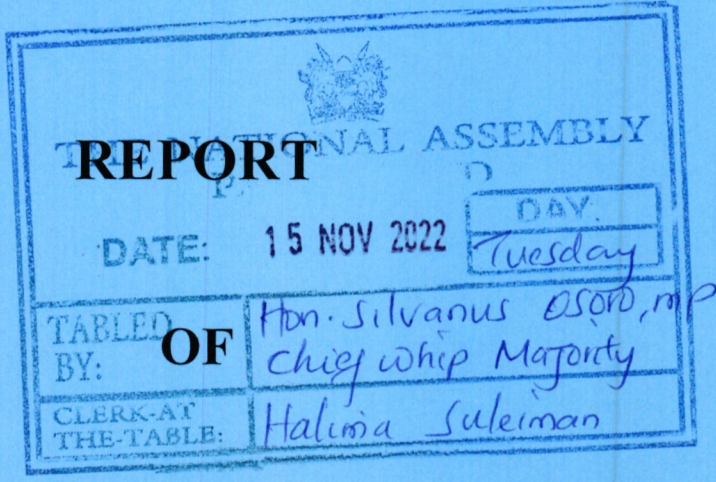 THE NATIONAL ASSEMBLY
REPORT
DATE: 15 NOV 2022
DAY.
Tuesday
TABLED BY:
Hon. Silvanus Osoro, MP
Chief Whip Majority
OF
CLERK-AT THE-TABLE:
Halima Suleiman